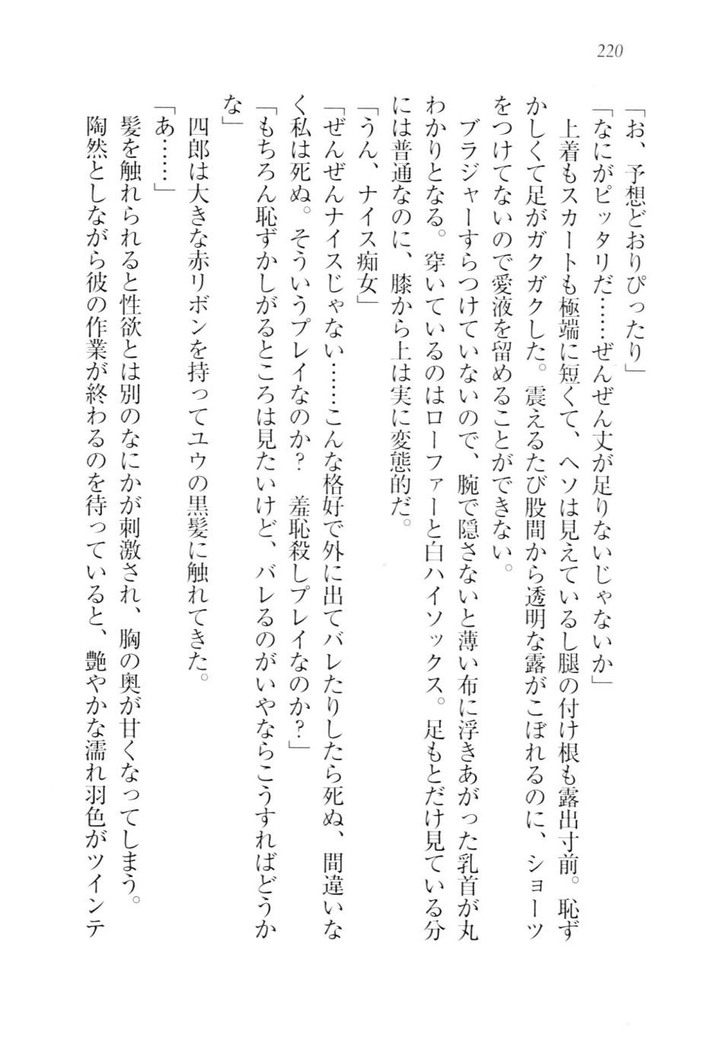 220
「お、予想どおりぴったり」
「なにがピッタリだ……ぜんぜん丈が足りないじゃないか」
上着もスカートも極端に短くて、ヘソは見えているし腿の付け根も露出寸前。恥ず
かしくて足がガクガクした。震えるたび股間から透明な露がこぼれるのに、ショーツ
をつけてないので愛液を留めることができない。
ブラジャーすらつけていないので、腕で隠さないと薄い布に浮きあがった乳首が丸
わかりとなる。穿いているのはローファーと白ハイソックス。足もとだけ見ている分
には普通なのに、膝から上は実に変態的だ。
「うん、ナイス痴女」
「ぜんぜんナイスじゃない……こんな格好で外に出てバレたりしたら死ぬ、間違いな
く私は死ぬ。そういうプレイなのか？　羞恥殺しプレイなのか？」
「もちろん恥ずかしがるところは見たいけど、バレるのがいやならこうすればどうか
な」
四郎は大きな赤リボンを持ってユウの黒髪に触れてきた。
「あ……」
髪を触れられると性欲とは別のなにかが刺激され、胸の奥が甘くなってしまう。
陶然としながら彼の作業が終わるのを待っていると、艶やかな濡れ羽色がツインテ